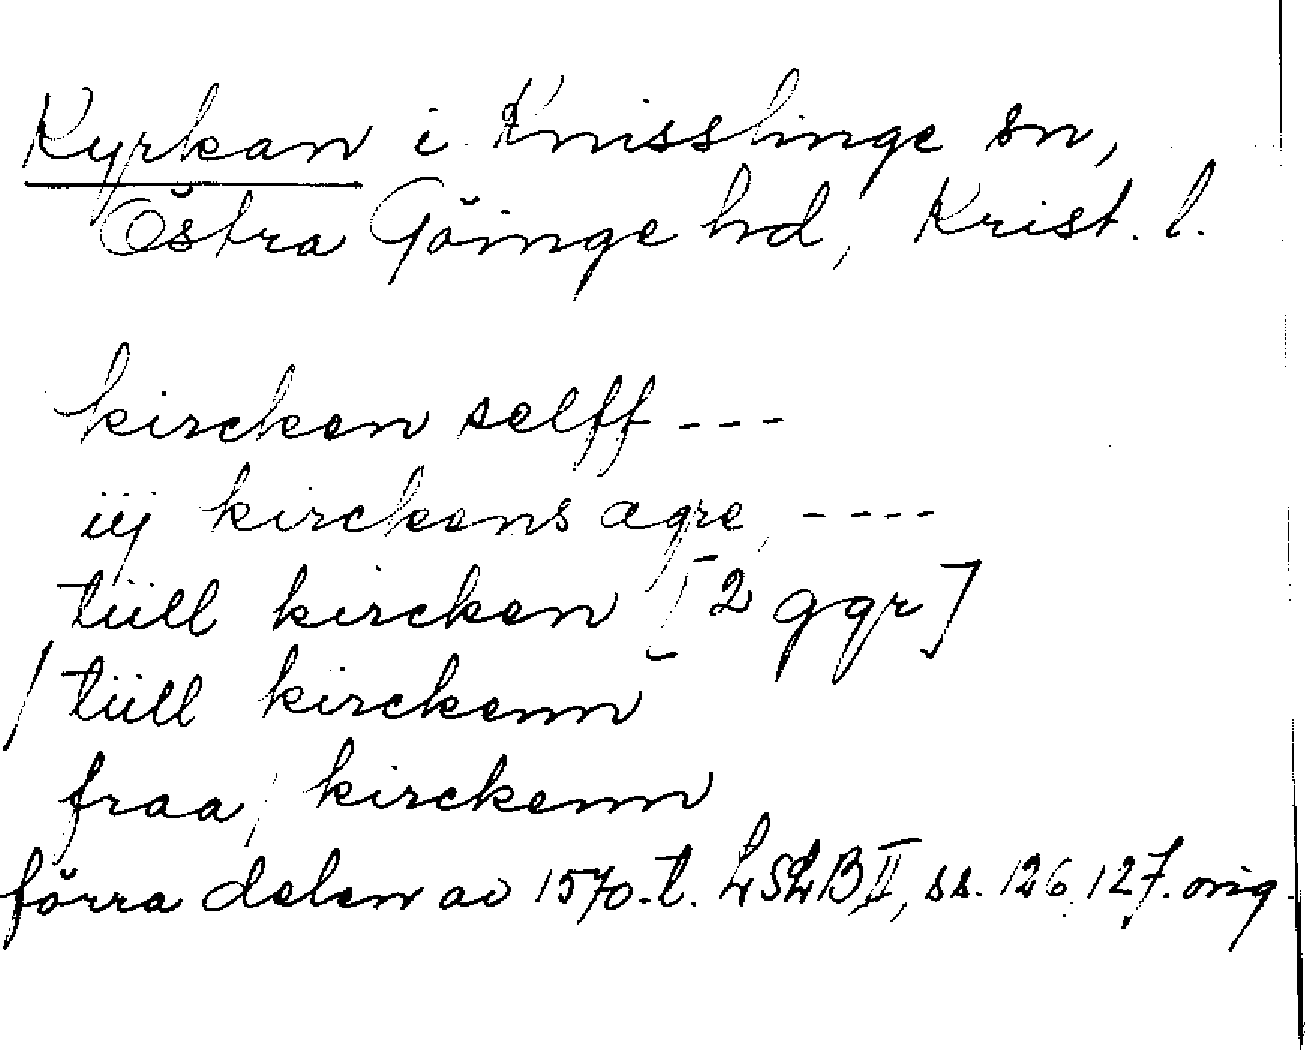 Kyrkan i Knisslinge sn,
Östra Göinge hd, Krist. l.
kircken selff ---
iij kirckens agre, ----
tiill kircken [2 ggr]
/ tiill kirckenn
fraa / kirckenn
förra delen av 1570-t. LSLB II, ss. 126, 127. orig.